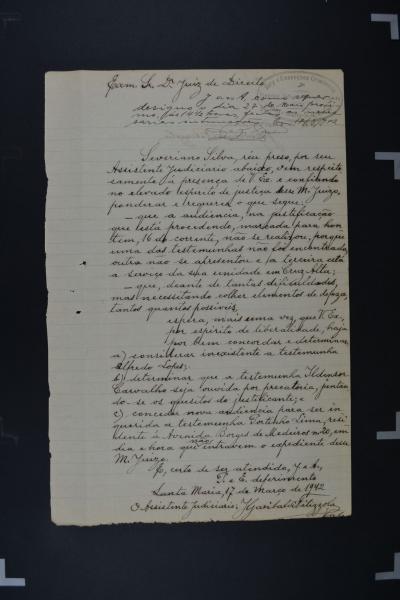 Exm. Sr. Dr. Juiz de Direito
J. aos A. como requer
designo o dia 27 de
mo, às 14 1/2 horas, feitas as neces-
sarias
Severiano Silva, reu preso, por seu
Assistente Judiciario abaixo, vem respeito
samente à presença de V. Ex. e confiando
no elevado espirito de justiça desse M. Juizo,
ponderar e requerer o que segue:
— que a audiencia, na justificação
que está procedendo, marcada para hon
tem, 16 do corrente, não se realizou, porque
uma das testemunhas não foi encontrada,
outra não se apresentou e a terceira está
a serviço da sua unidade em Cruz Alta;
— que, deante de tantas dificuldades,
mas necessitando colher elementos de defeza,
tantos quantos possiveis,
espera, mais uma vez, que V. Ex.,
por espirito de liberalidade, haja
por bem concordar e determinar
a) considerar inexistente a testemunha
Alfredo Lopes;
b) determinar que a testemunha Ildonsor
Carvalho seja ouvida por precatoria, juntan
do-se os quesitos do justificante; e
c) conceder nova audiencia para ser in
querida a testemunha Lima, resi
dente à Avenida Borges de Medeiros em
dia e hora que não entravem o expediente desse
M. Juizo.
E, certo de ser atendido, J. e A.,
P. e E. deferimento
Santa Maria, 17 de Março de 1942
O Assistente Judiciario: